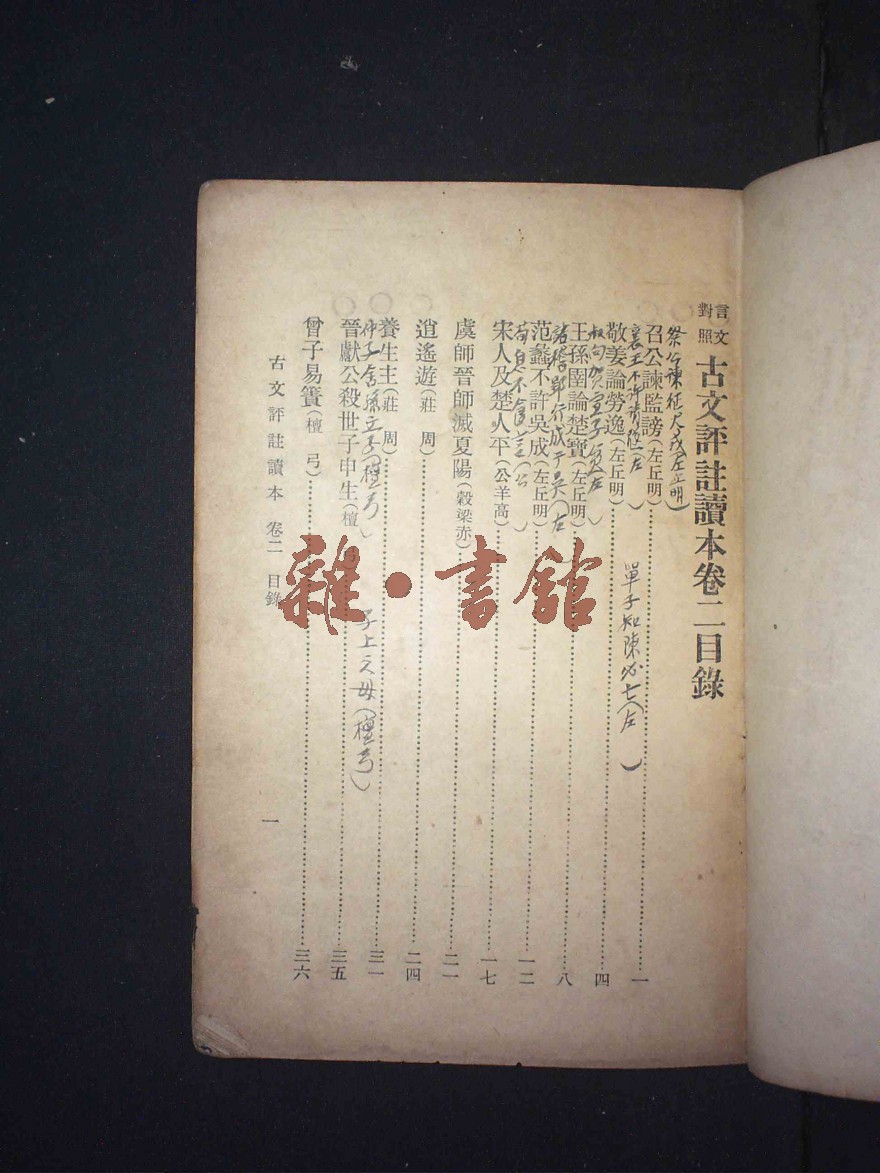 言文對照 古文評註讀本卷二目錄
祭公諫征犬戎(左丘明)
召公諫監謗(左丘明) 一
襄王不許請隧(左 )
單子知陳必亡(左 )
敬姜論勞逸(左丘明) 四
叔向賀 左 )
王孫圉論楚寶(左丘明) 八
諸稽郢行成于吳(左 )
范蠡不許吳成(左丘明) 一二
宋人及楚人平(公羊高) 一七
虞師晉師滅夏陽(穀梁赤) 二一
逍遙遊(莊 周) 二四
養生主(莊 周) 三一
仲子舍孫立子(檀弓)
子上之母(檀弓)
晉獻公殺世子申生(檀 三五
曾子易簀(檀 弓) 三六
古文評註讀本 卷二 目錄
一
雜·書館